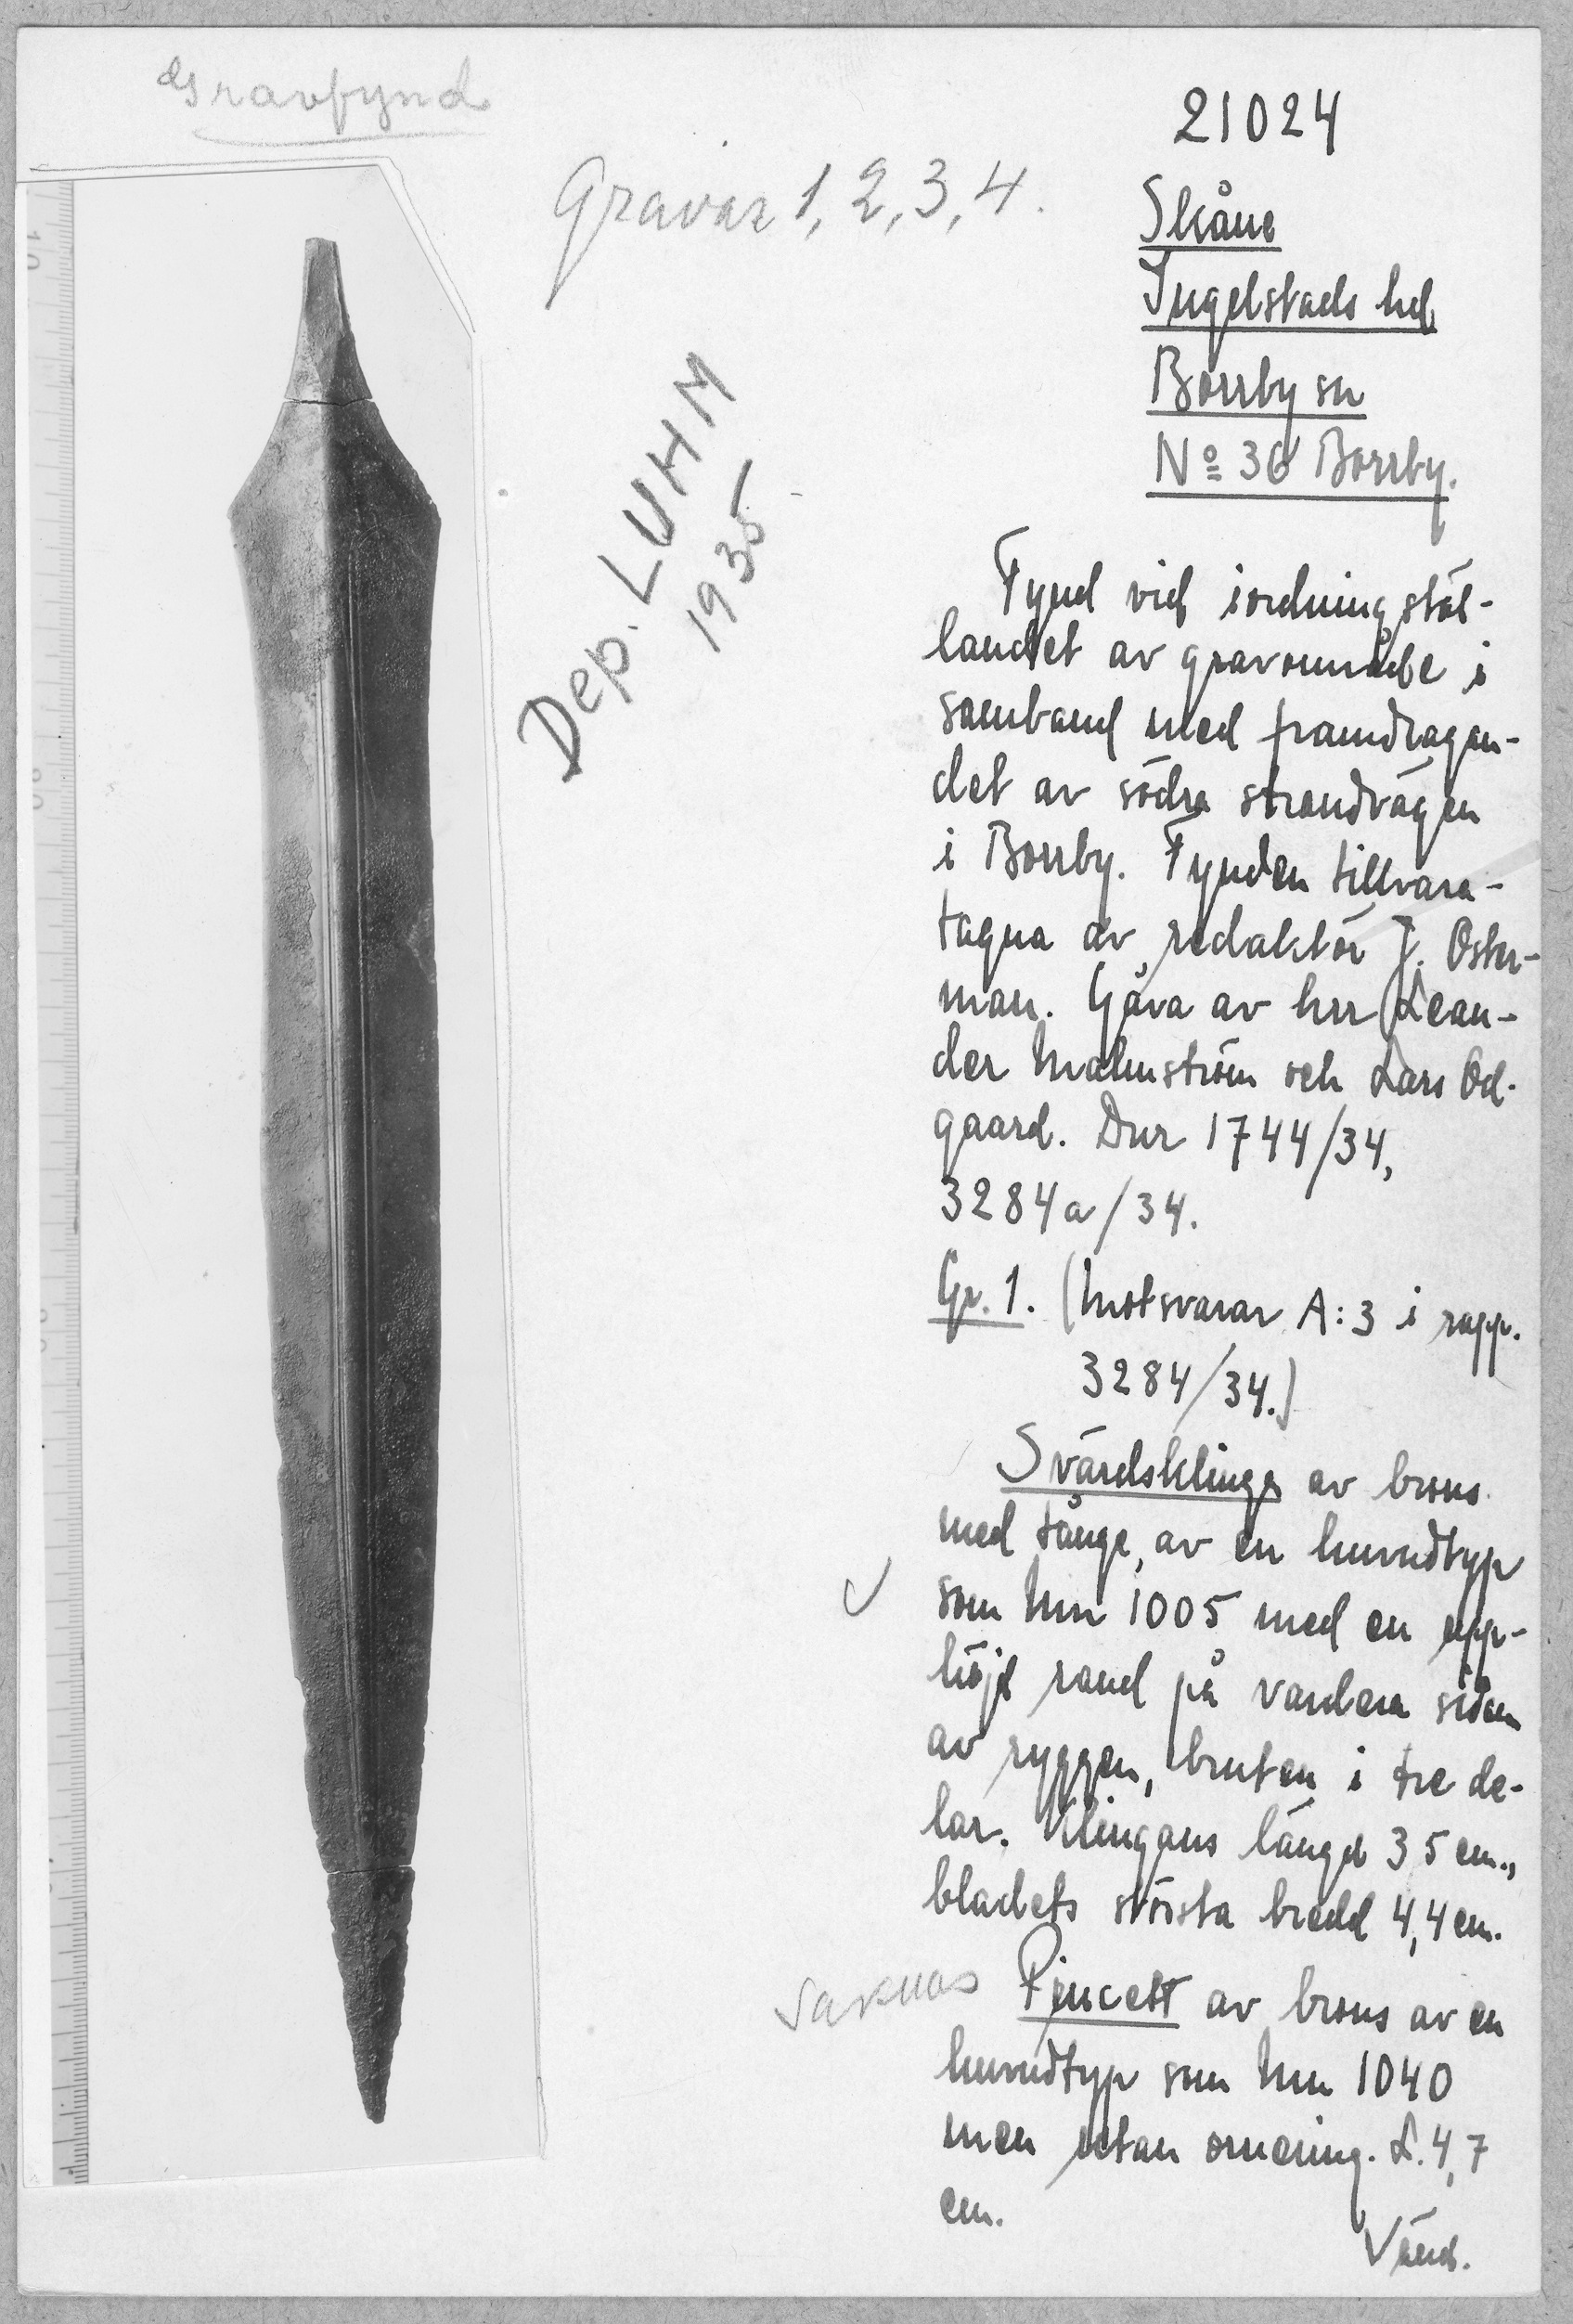 Gravfynd
Gravar 1, 2, 3, 4.
Dep. LUHM
1935
21024
Skåne
Ingelstads hd
Borrby sn
No 36 Borrby.
Fynd vid iordningstäl-
landet av gravområde i
samband med framdragan-
det av södra strandvägen
i Borrby. Fynden tillvara-
tagna av redaktör J. Öster-
man. Gåva av hrr Lean-
der Malmström och Lars Od-
gaard. Dnr 1744/34,
3284a/34.
Gr. 1. (Motsvarar A:3 i rapp.
3284/34.)
Svärdsklinga av brons
med tånge, av en huvudtyp
som Mm 1005 med en upp-
höjd rand på vardera sidan
av ryggen, bruten i tre de-
lar. Klingans längd 35 cm.,
bladets största bredd 4,4 cm.
Saknas Pincett av brons av en
huvudtyp som Mm 1040
men utan ornering. L. 4,7
cm.
Vänd.